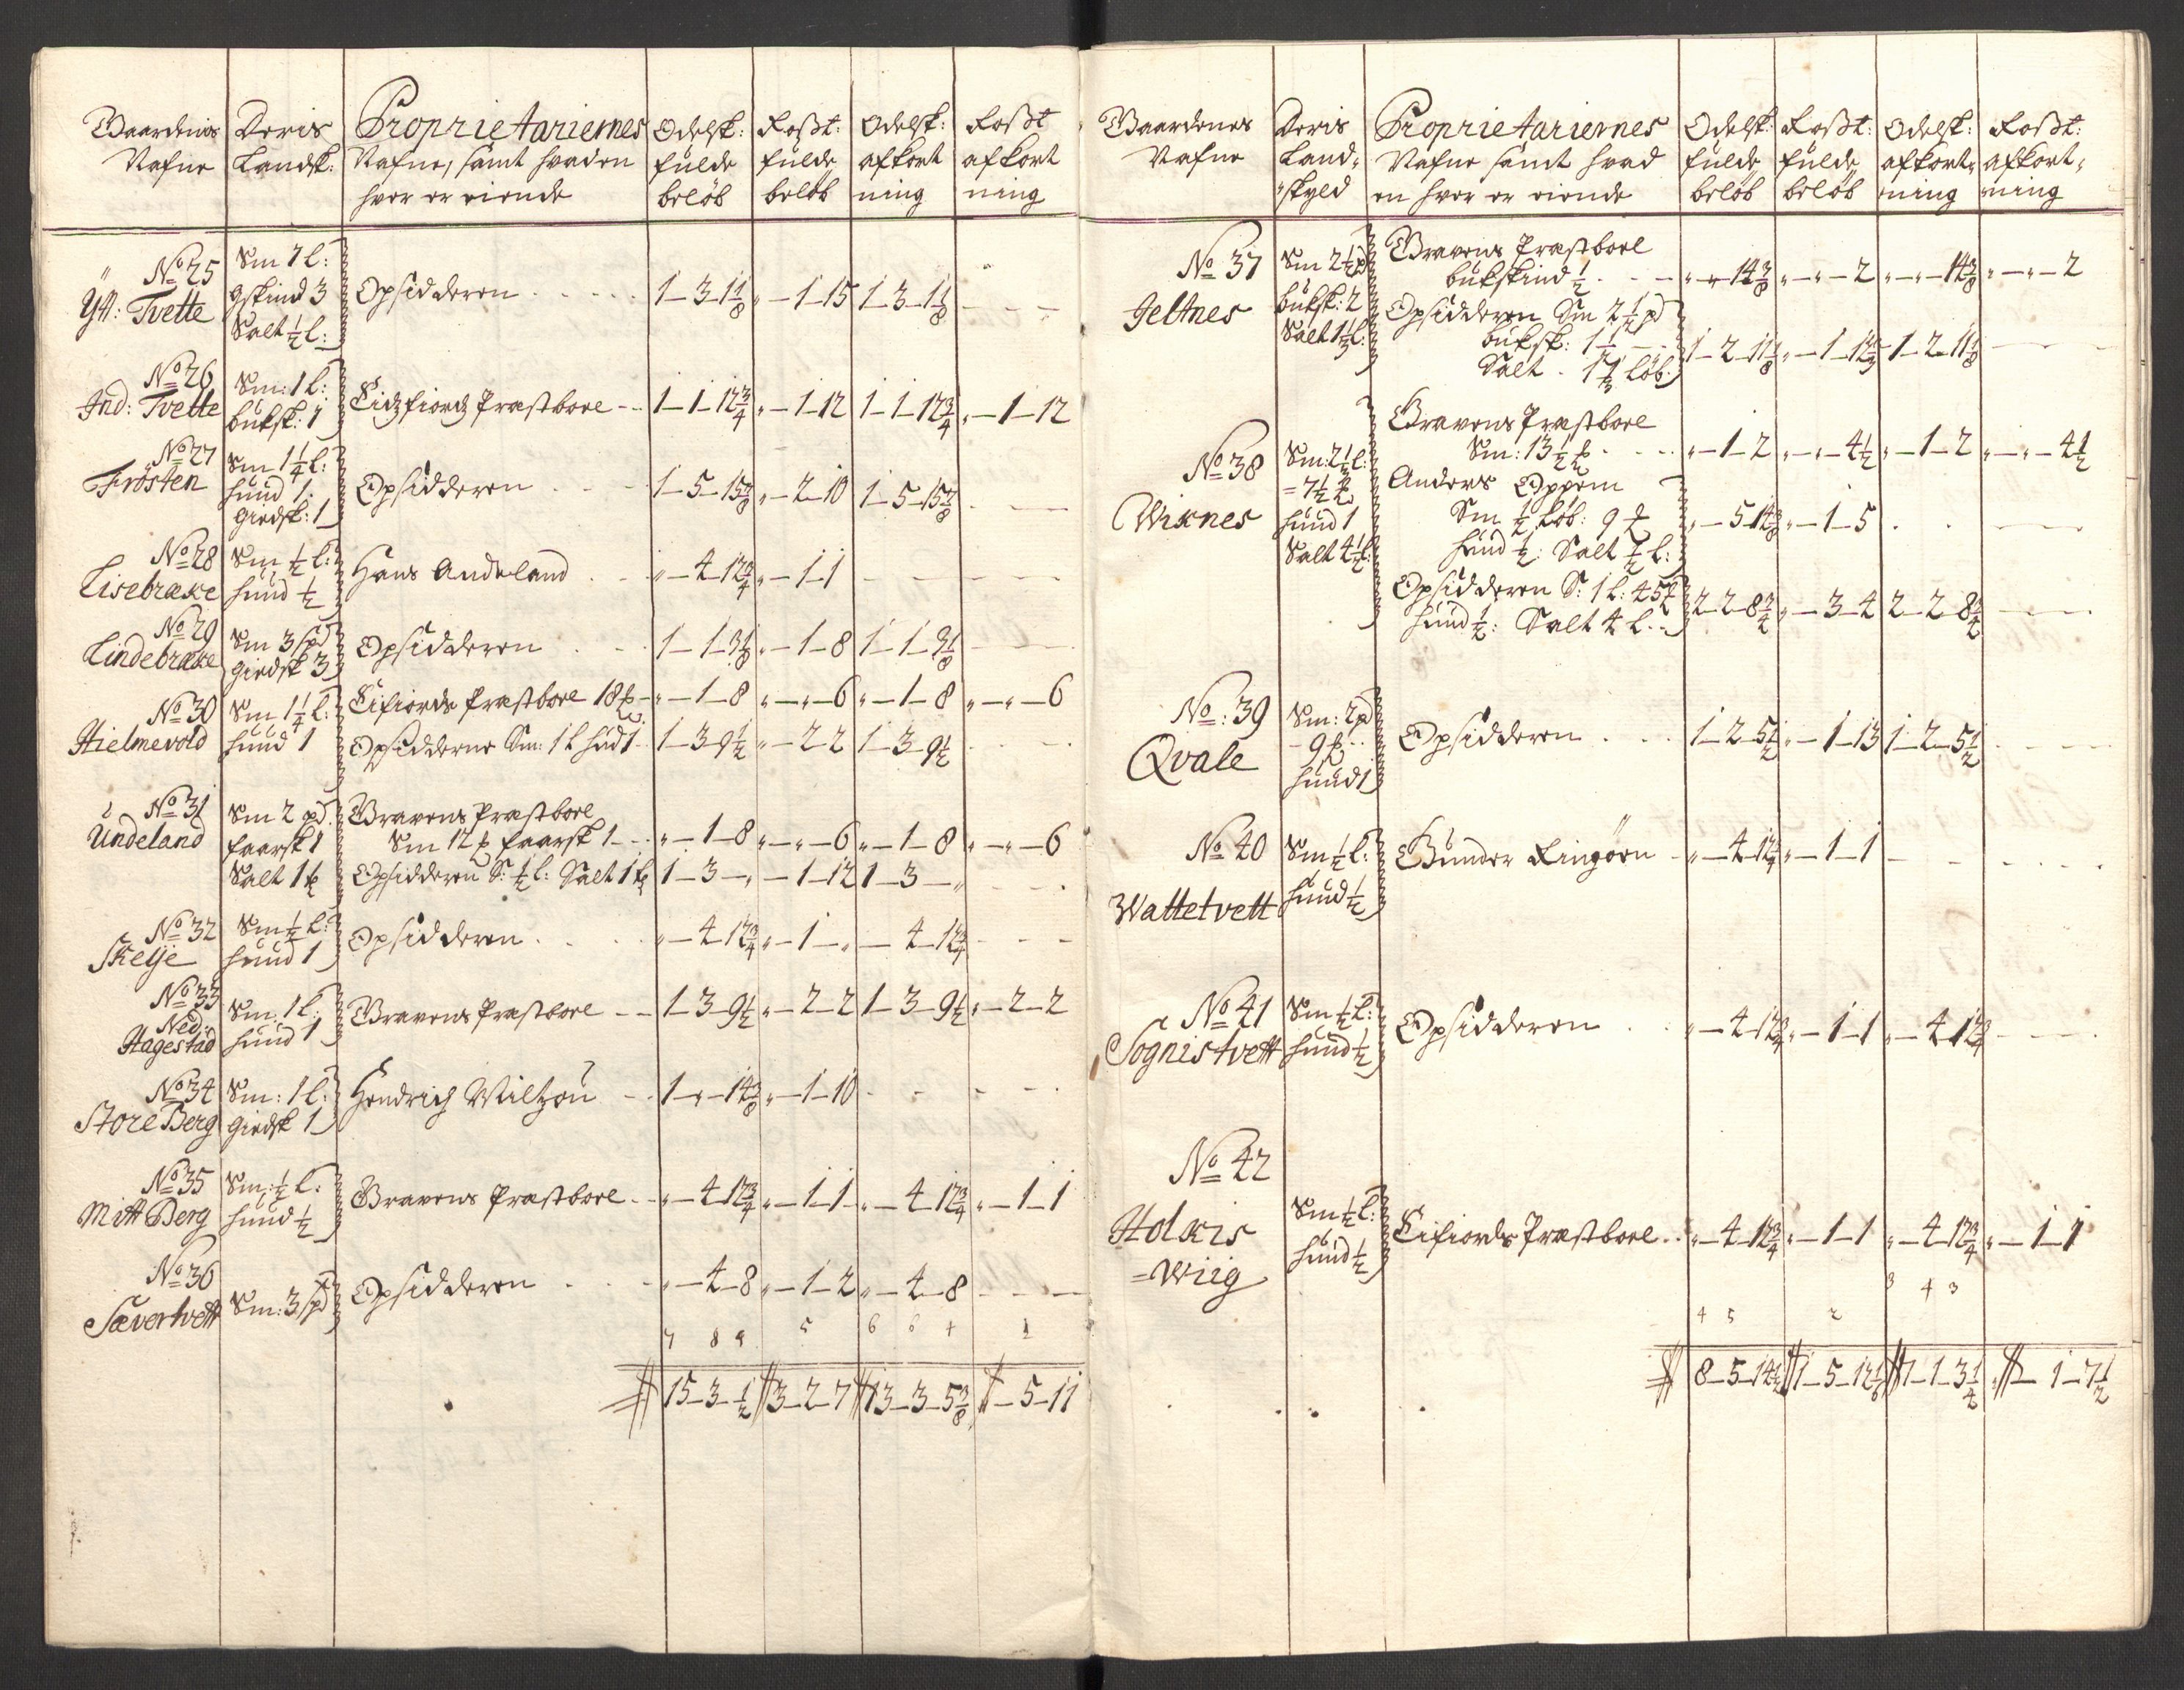 Gaardenis Nafne | Deris Landsk: | Proprietariernes Nafne, samt hvad en hver er eiende | Odelsk: fulde beløb | Rosst: fulde beløb | Odelsk: afkort ning | Rosst afkort ning
No 25 Ytt: Tvette | Sm 1 l: gskind 3 Salt ½ l: | Opsidderen | 1–3–1⅛ | „–1–15 | 1–3–1⅛ | – – –
No 26 Ind: Tvette | Sm: 1 l: buksk: 1 | Eidzfiordz Præstbore | 1–1–12¾ | „–1–12 | 1–1–12¾ | „–1–12
No 27 Frøsten | Sm 1¼ l: hund 1. giedsk: 1 | Opsidderen | 1–5–15⅞ | „–2–10 | 1–5–15⅞ | – – –
No 28 Lisebrække | Sm ½ l: hund ½ | Hans Andeland | „–4–12¾ | „–1–1 | – – – | – – –
No 29 Lindebræke | Sm 3 spd giedsk 3 | Opsidderen | 1–1–3⅛ | „–1–8 | 1–1–3⅛ | – – –
No 30 Hielmevold | Sm 1¼ l: hund 1 | Eifiords Præstbore 18 | „–1–8 | „–„–6 | „–1–8 | „–„–6
Opsidderne Sm: 1 l hud 1 | 1–3–9½ | „–2–2 | 1–3–9½ | – – –
No 31 Undeland | Sm 2 pd faarsk 1 Salt 1 | Gravens Præstbore
Sm 12 faarsk 1 | „–1–8 | „–„–6 | „–1–8 | „–„–6
Opsidderen S: ½ l: Salt 1 | 1–3–„ | –1–12 | 1–3–„ | – – –
No 32 Skelje | Sm ½ l: hund 1 | Opsidderen | „–4–12¾ | „–1–„ | –4–12¾ | – – –
No 33 Ned: Hagestad | Sm. 1 l: hund 1 | Gravens Præstbore | 1–3–9½ | „–2–2 | 1–3–9½ | „–2–2
No 34 Store Berg | Sm: 1 l: giedsk 1 | Hendrich Miltzou | 1–„–14⅜ | „–1–10 | – – – | – – –
No 35 Mitt Berg | Sm: ½ l: hund ½ | Gravens Præstbore | „–4–12¾ | „–1–1 | „–4–12¾ | „–1–1
No 36 Sævertvett | Sm: 3 spd | Opsidderen | „–4–8 | „–1–2 | „–4–8 | – – –
15–3–½ | 3–2–7 | 13–3–5⅜ | –5–11
Gaardenes Nafne | Deris Land-skyld | Proprietariernes Nafne samt hvad en hver er eiende | Odelsk: fulde beløb | Rosst: fulde beløb | Odelsk: afkort-ning | Rosst: afkort-ning
No 37 Jeltnes | Sm 2½ pd buksk: 2 Salt 1⅓ l: | Gravens Præstboel
bukskind ½ | „–„–14⅜ | „–„–2 | „–„–14⅜ | „–„–2
Opsidderen Sm 2½ pd
buksk: 1½
Salt 1⅓ løb. | 1–2–11⅛ | „–1–14 | 1–2–11⅛ | – – –
No 38 Wixnes | Sm: 2½ l: =7½ hund 1 Salt 4½ l: | Gravens Præstboel
Sm: 13½ | „–1–2 | „–„–4½ | „–1–2 | „–„–4½
Anders Oppem
Sm ½ Løb: 9
hund ½: Salt ½ l: | „–5–14⅜ | „–1–5 | – – – | – – –
Opsidderen S: 1 l: 45
hund ½: Salt 4 l | 2–2–8¾ | „–3–4 | 2–2–8¾ | – – –
No: 39 Qvale | Sm: 2 pd –9 hund 1 | Opsidderen | 1–2–5½ | „–1–13 | 1–2–5½ | – – –
No 40 Wattetvett | Sm ½ l: hund ½ | Gunder Ringøen | „–4–12¾ | „–1–1 | – – – | – – –
No 41 Sognistvett | Sm ½ l: hund ½ | Opsidderen | „–4–12¾ | „–1–1 | „–4–12¾ | – – –
No 42 Holkis =Wiig | Sm ½ l: hund ½ | Eifiords Præstboel | „–4–12¾ | „–1–1 | „–4–12¾ | „–1–1
8–5–14½ | 1–5–12⅙ | 7–1–3¼ | – 1–7½